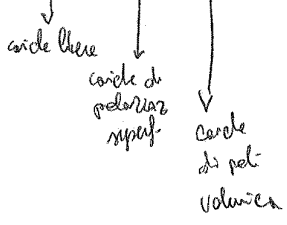 cariche libere
cariche di
polarizz
superf.
cariche
di pol.
volumica